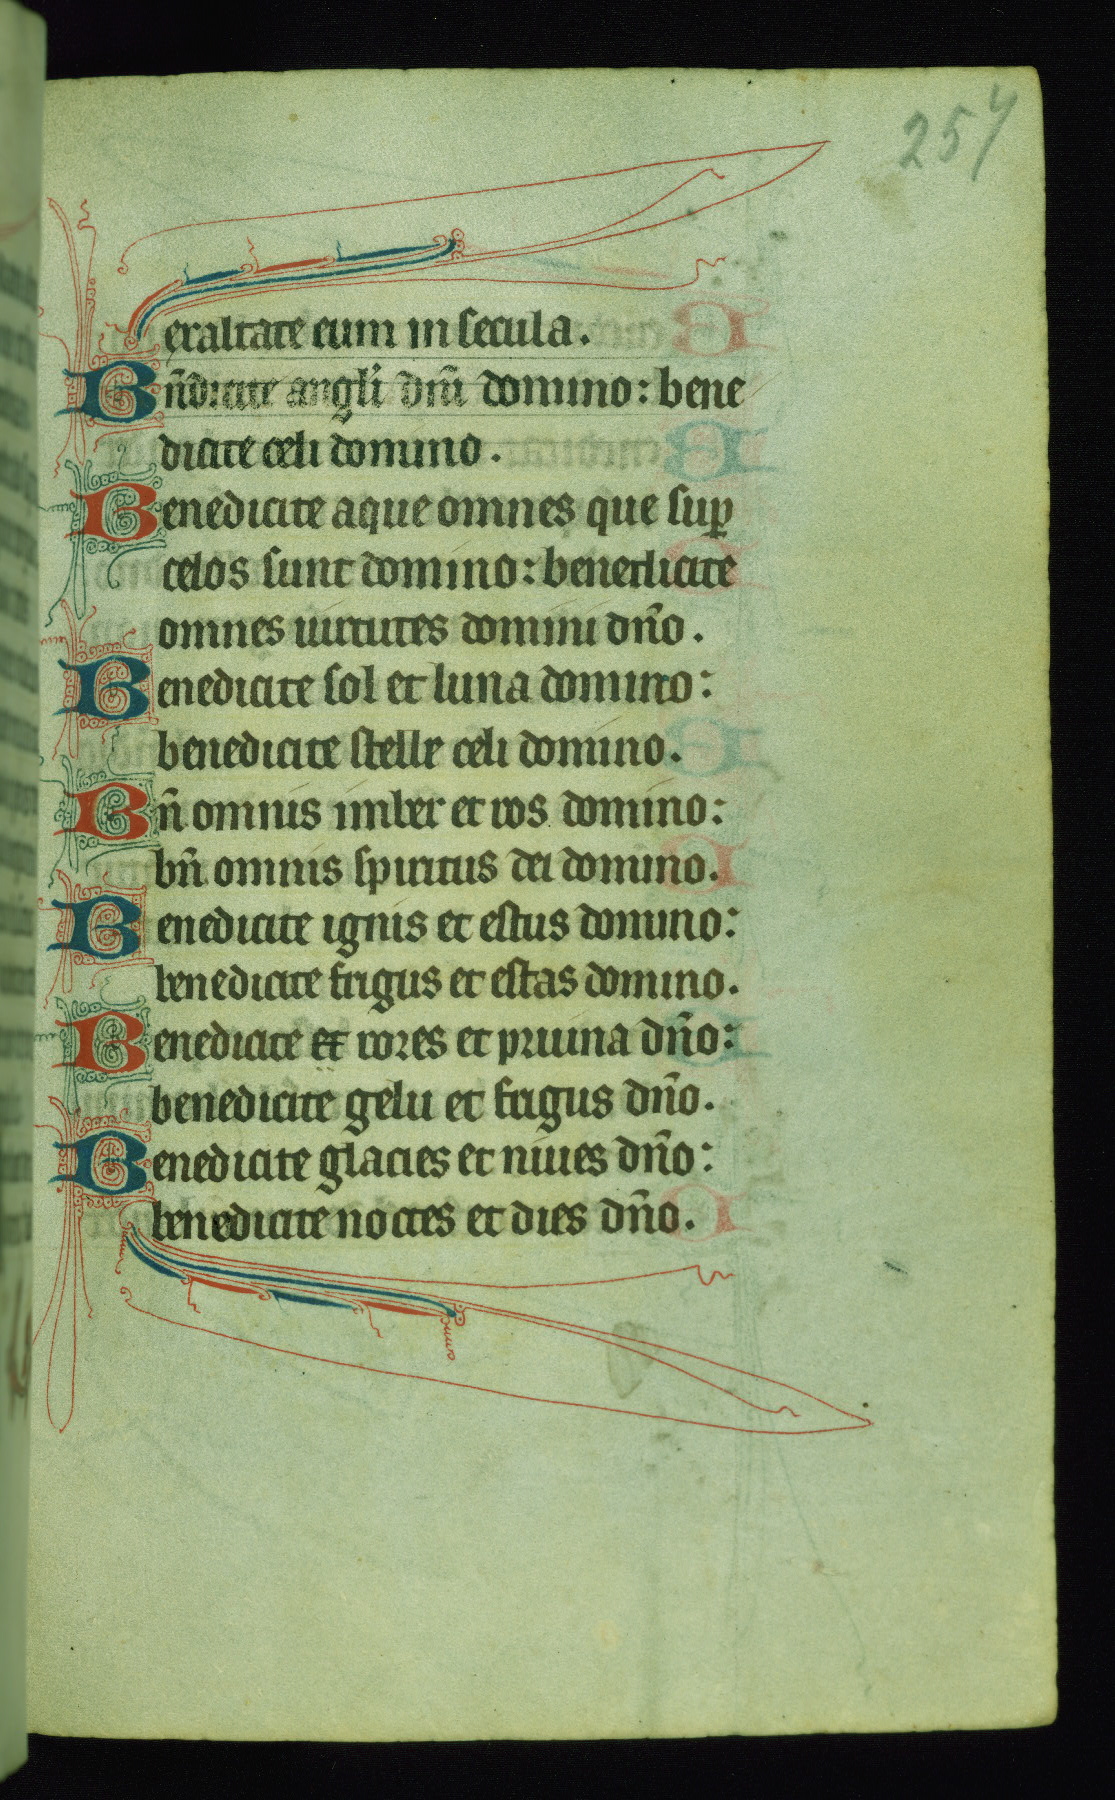 257
exaltate eum in secula.
Bn̄dicite angl'i dn̄i domino: bene
dicite celi domino.
Benedicite aque omnes que suꝑ
celos sunt domino: benedicite
omnes uirtutes domini dn̄o.
Benedicite sol et luna domino:
benedicite stelle celi domino.
Bn̄ omnis imber et ros domino:
bn̄ omnis spiritus dei domino.
Benedicite ignis et estus domino:
benedicite frigus et estas domino.
Benedicite et rores et pruina dn̄o:
benedicite gelu et frigus dn̄o.
Benedicite glacies et niues dn̄o:
benedicite noctes et dies dn̄o.